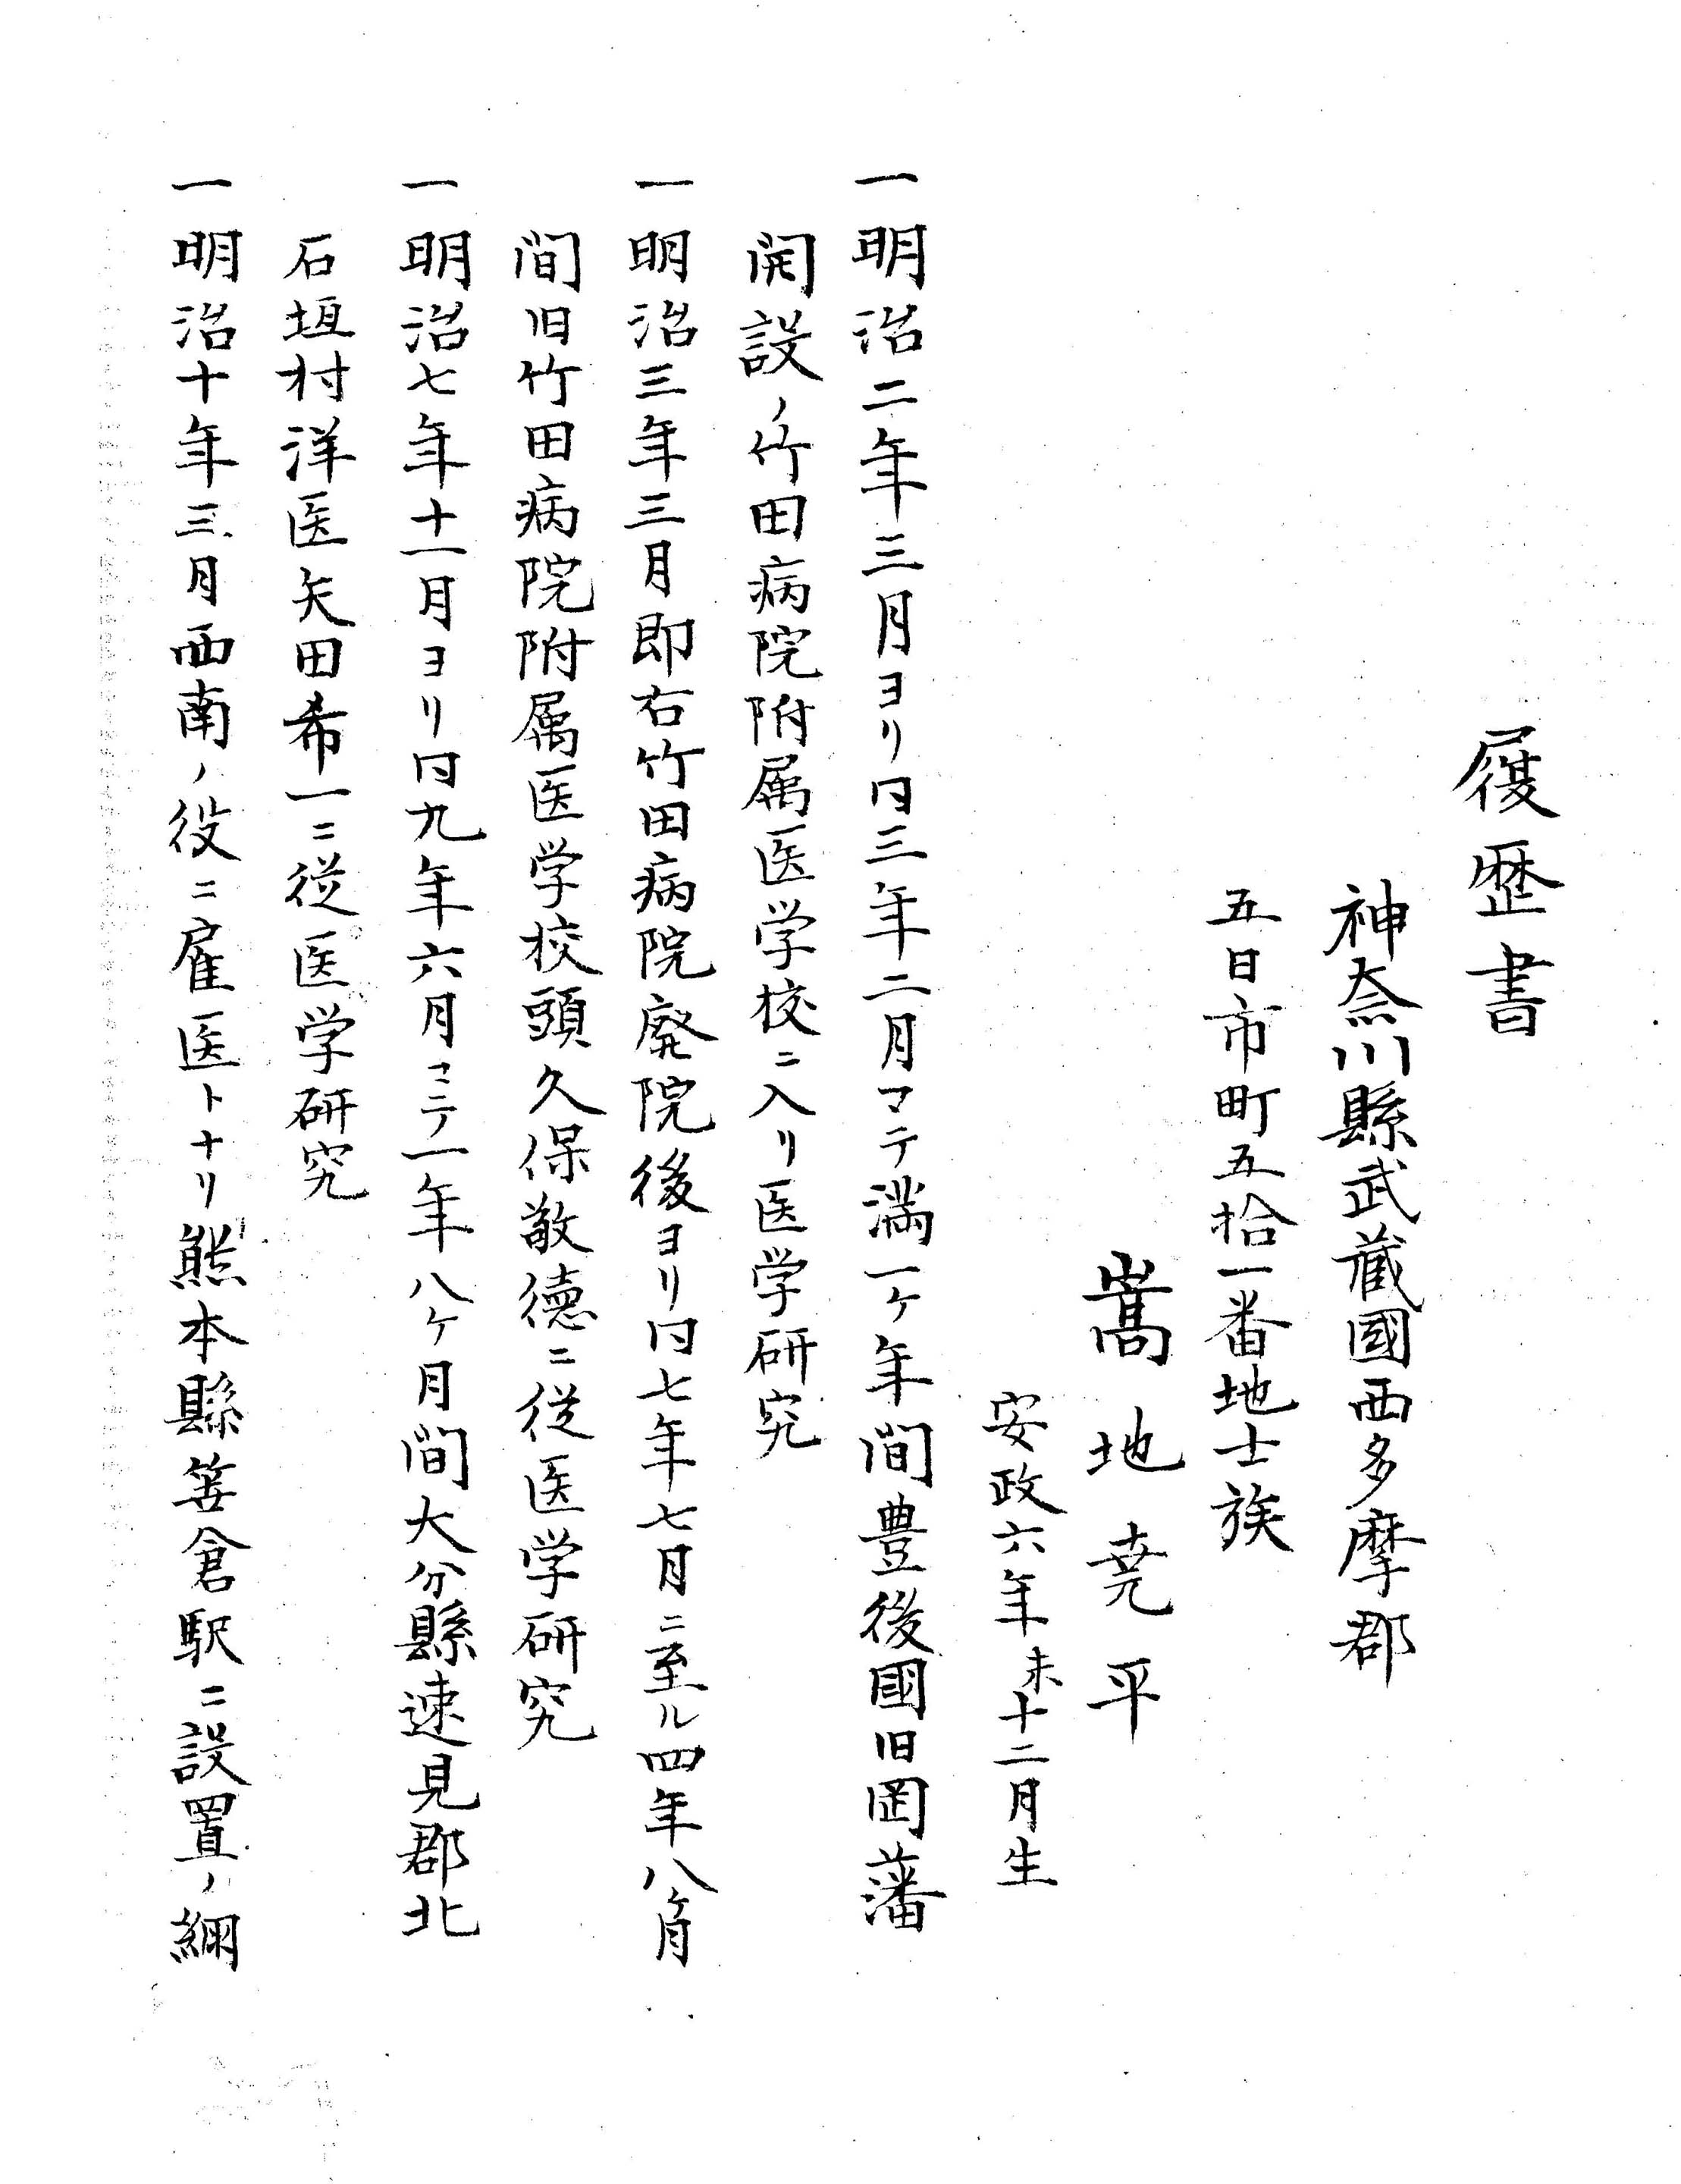 履歴書
神奈川縣武蔵國西多摩郡
五日市町五拾一番地士族
嵩地堯平
安政六年未十二月生
一明治二年三月ヨリ仝三年二月マテ満一ケ年間豊後國旧岡藩
開設ノ竹田病院附属医学校ニ入リ医学研究
一明治三年三月即右竹田病院廃院後ヨリ仝七年七月ニ至ル四年八ケ月
間旧竹田病院附属医学校頭久保敬徳ニ従医学研究
一明治七年十一月ヨリ仝九年六月マテ一年八ケ月間大分縣速見郡北
石垣村洋医矢田希一ニ従医学研究
一明治十年三月西南ノ役ニ雇医トナリ熊本縣笹倉駅ニ設置ノ綳